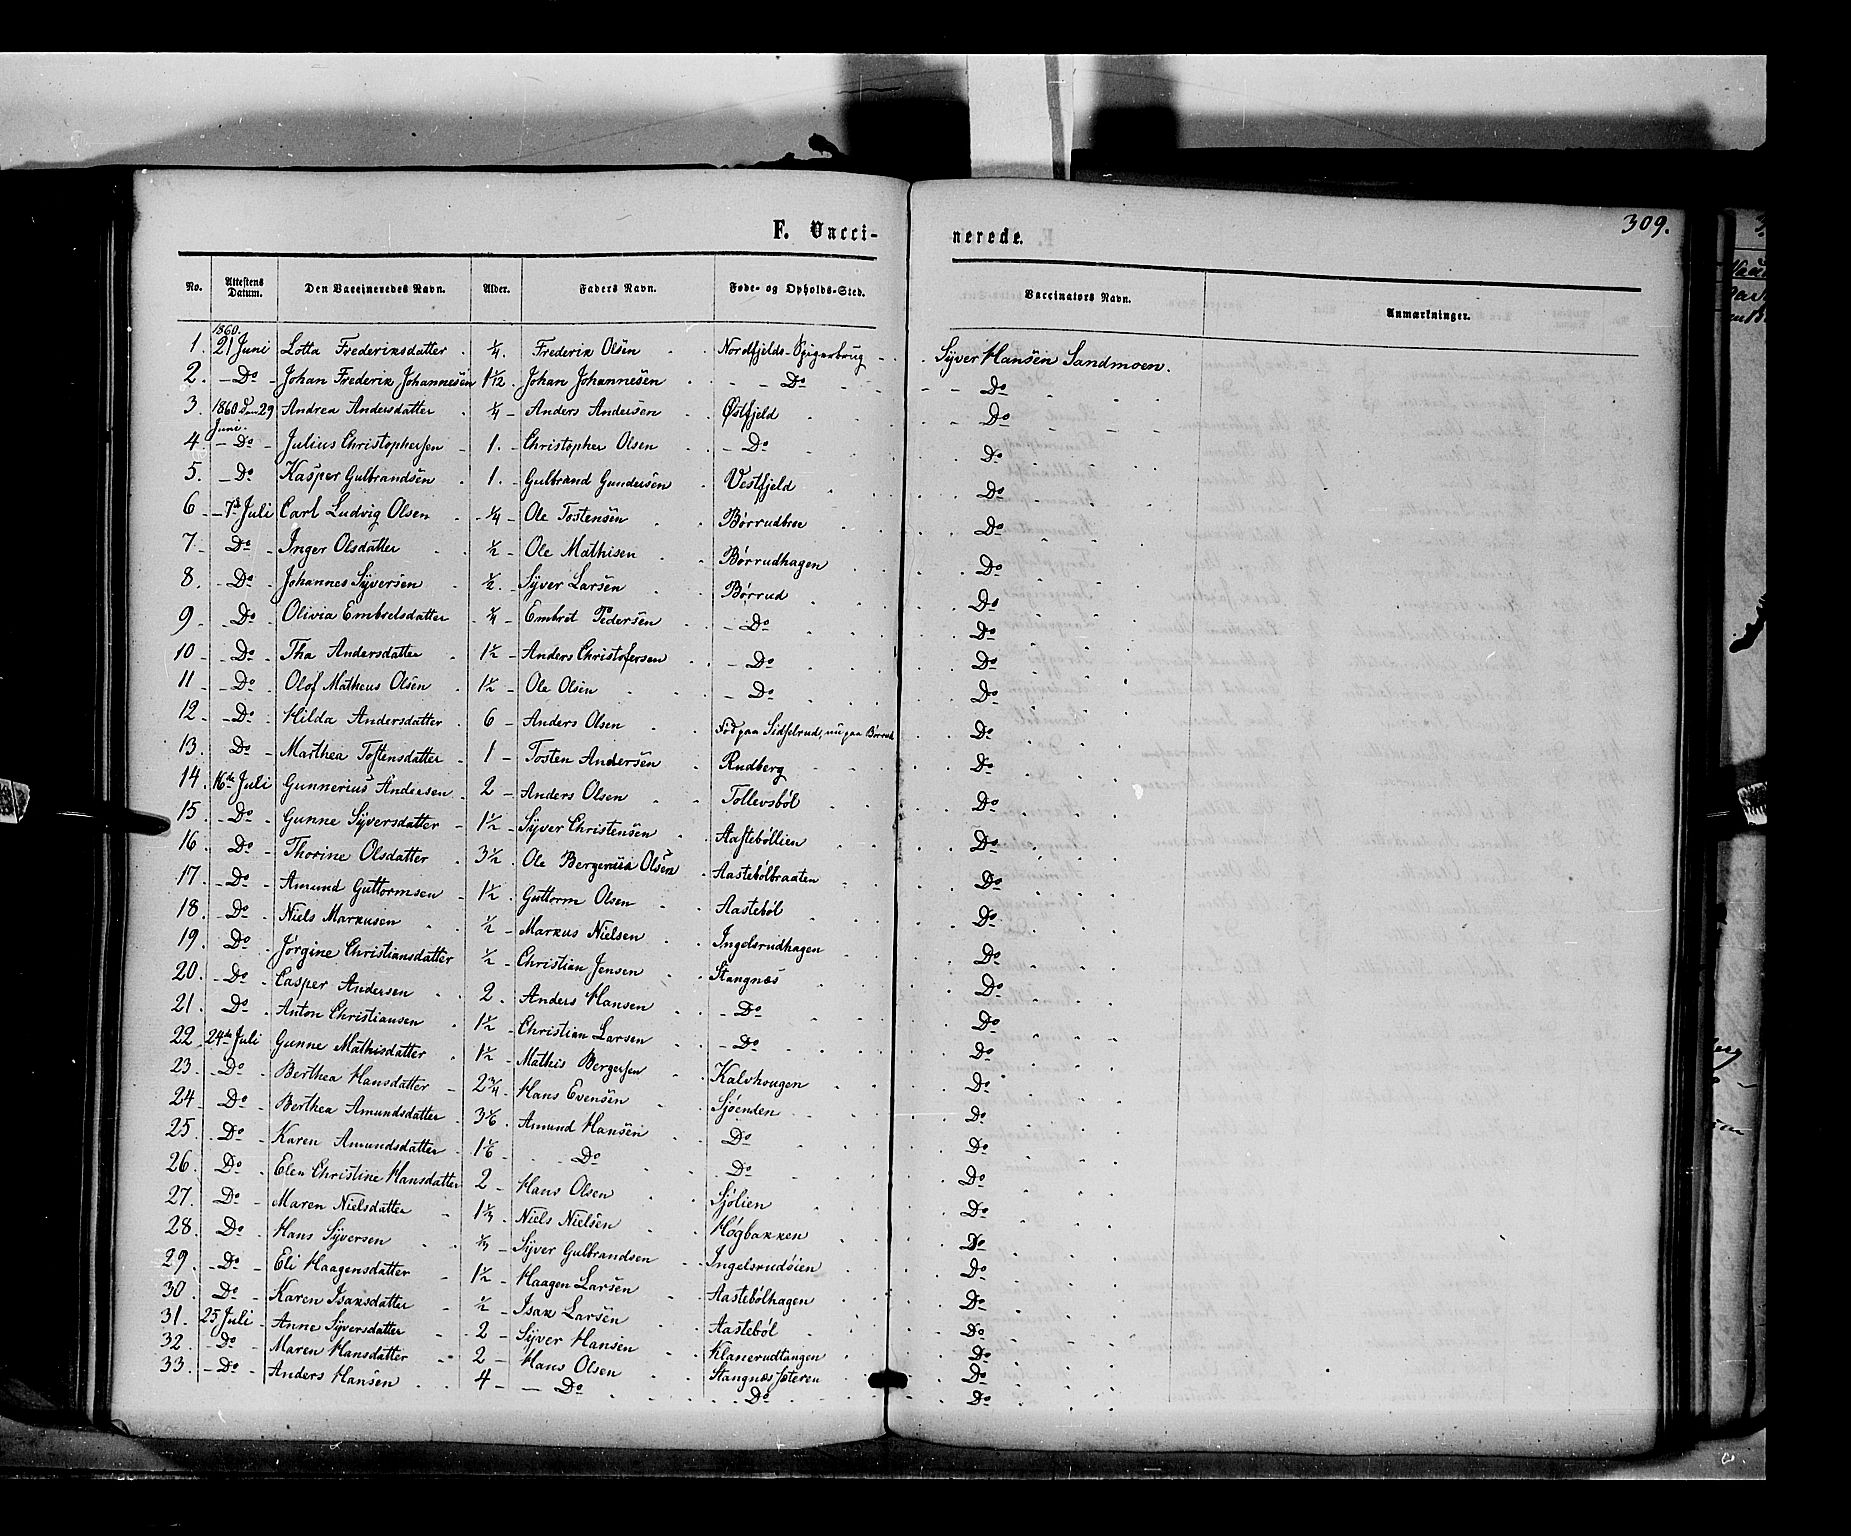 309.
F. Vacci- nerede.
No. Attestens Datum. Den Vaccineredes Navn. Alder. Faders Navn. Føde- og Opholds-Sted. Vaccinators Navn. Anmærkninger.
1860.
1. 21 Juni Lotta Frederiksdatter ¼. Frederik Olsen Nordfjelds- Syver Hansen Sandmoen.
2. Do Johan Frederik Johannesen 1 1/12. Johan Johannesen Do Do
3. 1860 29 Juni. Andrea Andersdatter ¼ Anders Andersen Østfjeld Do
4 Do Julius Christophersen 1. Christopher Olsen Do Do
5. Do Kasper Gulbrandsen 1. Gulbrand Gundersen Vestfjeld Do
6 7de Juli Carl Ludvig Olsen ¼ Ole Tostensen Børrudbro Do
7. Do Inger Olsdatter ½ Ole Mathisen Børrudhagen Do
8. Do Johannes Syversen ½. Syver Larsen Børrud Do
9 Do Olivia Embretsdatter ¼ Embret Pedersen Do Do
10 Do Tha Andersdatter 1½ Anders Christofersen Do Do
11 Do Olof Matheus Olsen 1½ Ole Olsen Do Do
12 Do Hilda Andersdatter 6 Anders Olsen Fød paa Sidselrud, nu paa Børrud Do
13. Do Marthea Tostensdatter 1 Tosten Andersen Rudberg Do
14. 16de Juli Gunnerius Andersen 2 Anders Olsen Tollevsbøl Do
15. Do Gunne Syversdatter 1½ Syver Christensen Aastebøllien Do
16. Do Thorine Olsdatter 3½ Ole Bergerus Olsen Aastebølbraaten Do
17. Do Amund Guttormsen 1½ Guttorm Olsen Aastebøl Do
18. Do Niels Markusen ½ Markus Nielsen Ingelsrudhagen Do
19. Do Jørgine Christiansdatter ½ Christian Jensen Stangnæs Do
20. Do Casper Andersen 2. Anders Hansen Do Do
21. Do Anton Christiansen 1½ Christian Larsen Do Do
22 24de Juli Gunne Mathisdatter 1½ Mathis Bergersen Kalvhougen Do
23. Do Berthea Hansdatter 2¾ Hans Evensen Sjøenden Do
24. Do Berthea Amundsdatter 3 1/6 Amund Hansen Do Do
25. Do Karen Amundsdatter 1 1/6 Do Do Do
26. Do Elen Christine Hansdatter 2 Hans Olsen Sjølien Do
27. Do Maren Nielsdatter 1⅓ Niels Nielsen Høgbakken Do
28. Do Hans Syversen ⅓ Syver Gulbrandsen Ingelsrudøien Do
29. Do Eli Haagensdatter 1½ Haagen Larsen Aastebølhagen Do
30. Do Karen Isaksdatter ½ Isak Larsen Aastebøl Do
31. 25 Juli Anne Syversdatter 2 Syver Hansen Klanerudtangen Do
32. Do Maren Hansdatter 2 Hans Olsen Stangnæssæteren Do
33. Do Anders Hansen 4 Do Do Do